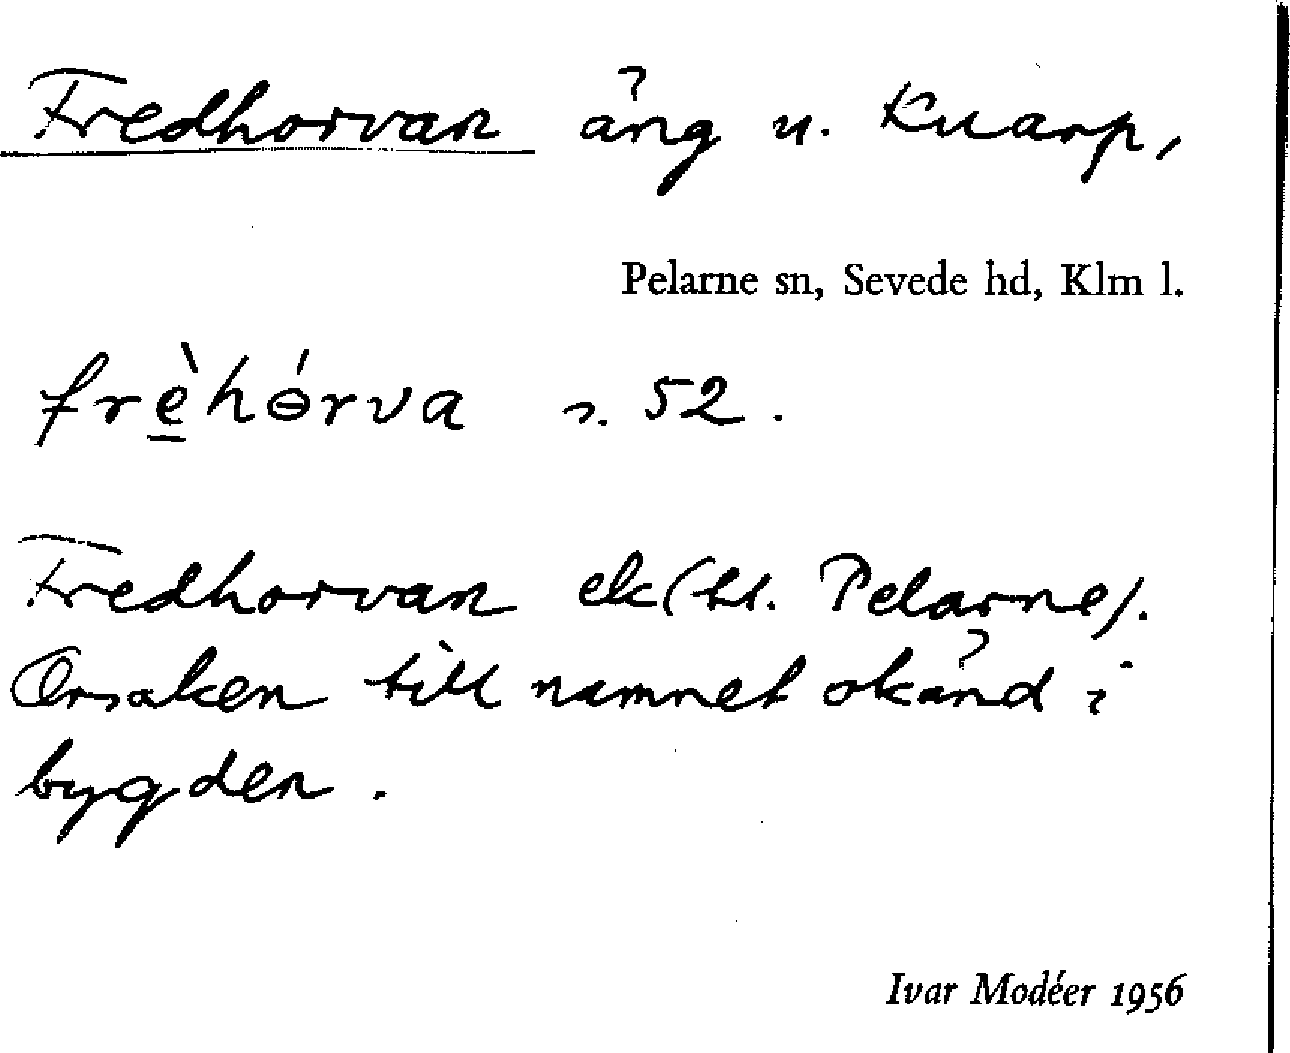 Fredhorvan äng u. Knarp,
Pelarne sn, Sevede hd, Klm l.
frèhǿrva s. 52.
Fredhorvan ek (bl. Pelarne).
Orsaken till namnet okänd i
bygden.
Ivar Modéer 1956